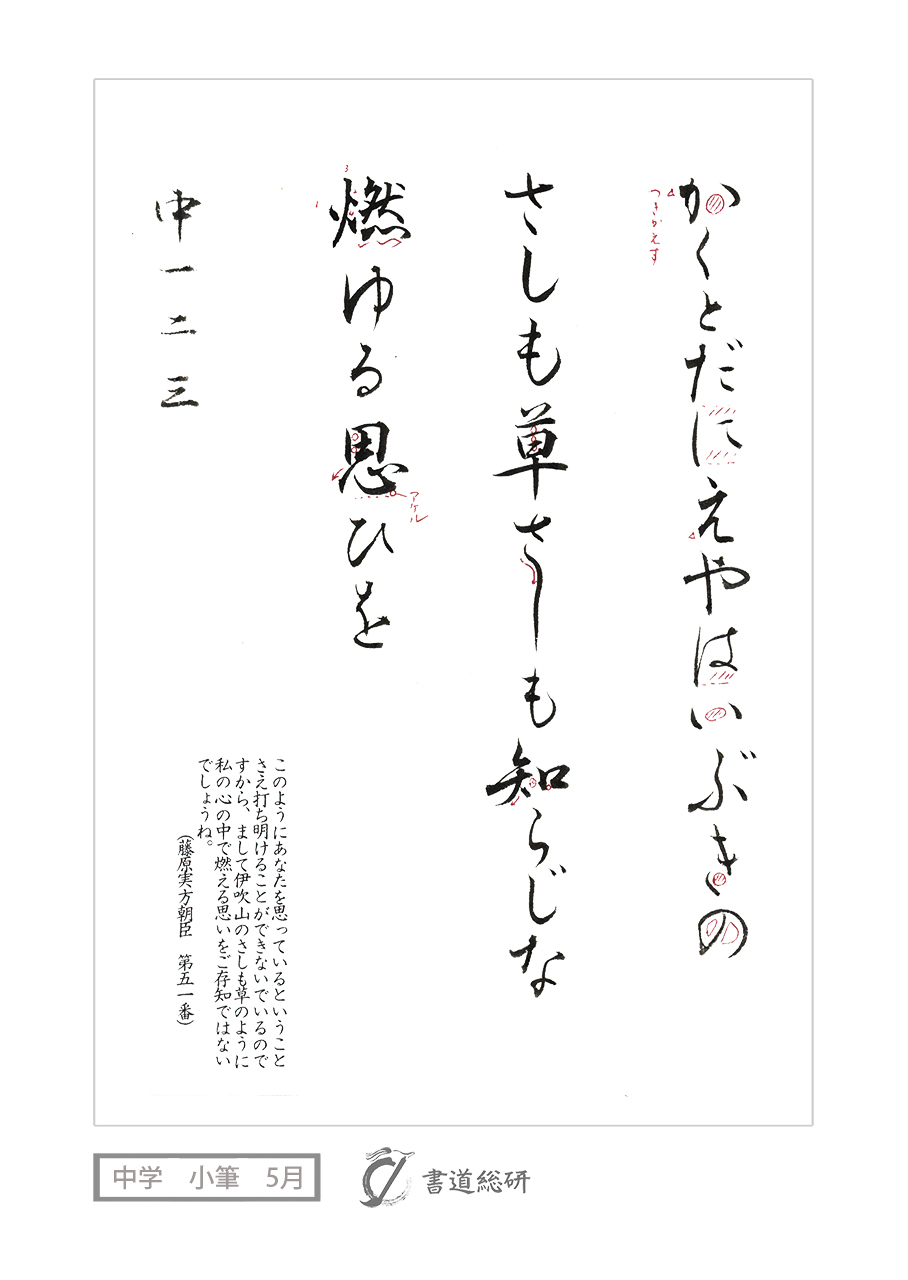 かくとだにえやはいぶきの
つきかえす
さしも草さしも知らじな
燃ゆる思ひを
アケル
中一二三
このようにあなたを思っているということ
さえ打ち明けることができないでいるので
すから、まして伊吹山のさしも草のように
私の心の中で燃える思いをご存知ではない
でしょうね。
(藤原実方朝臣　第五一番)
中学　小筆　5月
書道総研